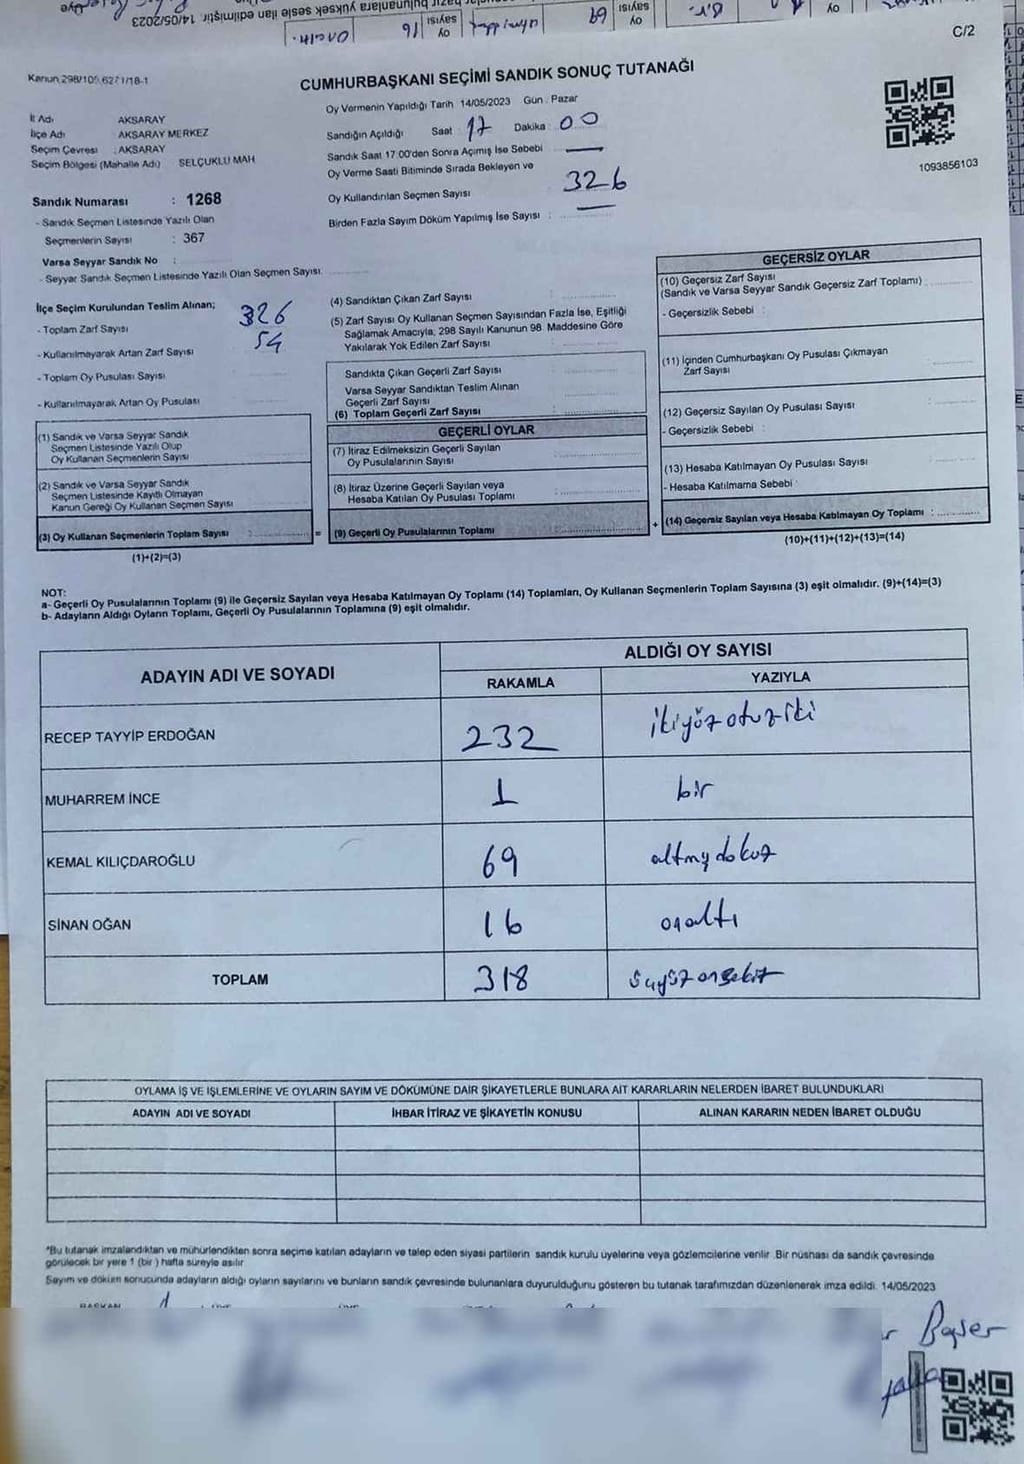 C/2
Kanun 298/105,62271/18-1
CUMHURBAŞKANI SEÇİMİ SANDIK SONUÇ TUTANAĞI
İl Adı AKSARAY
İlçe Adı AKSARAY MERKEZ
Seçim Çevresi : AKSARAY
Seçim Bölgesi (Mahalle Adı) SELÇUKLU MAH
Sandık Numarası : 1268
- Sandık Seçmen Listesinde Yazılı Olan
Seçmenlerin Sayısı : 367
Varsa Seyyar Sandık No :
- Seyyar Sandık Seçmen Listesinde Yazılı Olan Seçmen Sayısı.
Oy Vermenin Yapıldığı Tarih 14/05/2023 Gün : Pazar
Sandığın Açıldığı Saat : 17 Dakika : 00
Sandık Saat 17:00'den Sonra Açımış İse Sebebi
Oy Verme Saati Bitiminde Sırada Bekleyen ve
Oy Kullandırılan Seçmen Sayısı 326
Birden Fazla Sayım Döküm Yapılmış İse Sayısı :
1093856103
İlçe Seçim Kurulundan Teslim Alınan;
- Toplam Zarf Sayısı 326
- Kullanılmayarak Artan Zarf Sayısı 54
- Toplam Oy Pusulası Sayısı
- Kullanılmayarak Artan Oy Pusulası
(1) Sandık ve Varsa Seyyar Sandık
Seçmen Listesinde Yazılı Olup
Oy Kullanan Seçmenlerin Sayısı
(2) Sandık ve Varsa Seyyar Sandık
Seçmen Listesinde Kayıtlı Olmayan
Kanun Gereği Oy Kullanan Seçmen Sayısı
(3) Oy Kullanan Seçmenlerin Toplam Sayısı :
(1)+(2)=(3)
(4) Sandıktan Çıkan Zarf Sayısı
(5) Zarf Sayısı Oy Kullanan Seçmen Sayısından Fazla İse, Eşitliği
Sağlamak Amacıyla, 298 Sayılı Kanunun 98. Maddesine Göre
Yakılarak Yok Edilen Zarf Sayısı
Sandıkta Çıkan Geçerli Zarf Sayısı
Varsa Seyyar Sandıktan Teslim Alınan
Geçerli Zarf Sayısı
(6) Toplam Geçerli Zarf Sayısı
GEÇERLİ OYLAR
(7) İtiraz Edilmeksizin Geçerli Sayılan
Oy Pusulalarının Sayısı
(8) İtiraz Üzerine Geçerli Sayılan veya
Hesaba Katılan Oy Pusulası Toplamı
= (9) Geçerli Oy Pusulalarının Toplamı
GEÇERSİZ OYLAR
(10) Geçersiz Zarf Sayısı
(Sandık ve Varsa Seyyar Sandık Geçersiz Zarf Toplamı) :
- Geçersizlik Sebebi :
(11) İçinden Cumhurbaşkanı Oy Pusulası Çıkmayan
Zarf Sayısı
(12) Geçersiz Sayılan Oy Pusulası Sayısı
- Geçersizlik Sebebi :
(13) Hesaba Katılmayan Oy Pusulası Sayısı
- Hesaba Katılmama Sebebi :
+ (14) Geçersiz Sayılan veya Hesaba Katılmayan Oy Toplamı :
(10)+(11)+(12)+(13)=(14)
NOT:
a- Geçerli Oy Pusulalarının Toplamı (9) ile Geçersiz Sayılan veya Hesaba Katılmayan Oy Toplamı (14) Toplamları, Oy Kullanan Seçmenlerin Toplam Sayısına (3) eşit olmalıdır. (9)+(14)=(3)
b- Adayların Aldığı Oyların Toplamı, Geçerli Oy Pusulalarının Toplamına (9) eşit olmalıdır.
ADAYIN ADI VE SOYADI ALDIĞI OY SAYISI
RAKAMLA YAZIYLA
RECEP TAYYİP ERDOĞAN 232 ikiyüz otuz iki
MUHARREM İNCE 1 bir
KEMAL KILIÇDAROĞLU 69 altmış dokuz
SİNAN OĞAN 16 onaltı
TOPLAM 318 üçyüz onsekiz
OYLAMA İŞ VE İŞLEMLERİNE VE OYLARIN SAYIM VE DÖKÜMÜNE DAİR ŞİKAYETLERLE BUNLARA AİT KARARLARIN NELERDEN İBARET BULUNDUKLARI
ADAYIN ADI VE SOYADI İHBAR İTİRAZ VE ŞİKAYETİN KONUSU ALINAN KARARIN NEDEN İBARET OLDUĞU
*Bu tutanak imzalandıktan ve mühürlendikten sonra seçime katılan adayların ve talep eden siyasi partilerin sandık kurulu üyelerine veya gözlemcilerine verilir. Bir nüshası da sandık çevresinde
görülecek bir yere 1 (bir) hafta süreyle asılır
Sayım ve döküm sonucunda adayların aldığı oyların sayılarını ve bunların sandık çevresinde bulunanlara duyurulduğunu gösteren bu tutanak tarafımızdan düzenlenerek imza edildi. 14/05/2023